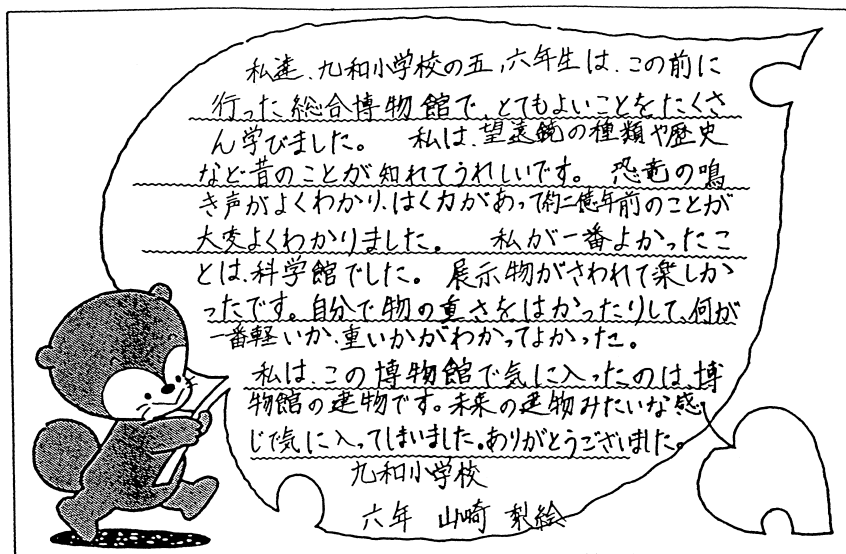 私達、九和小学校の五、六年生は、この前に
行った総合博物館で、とてもよいことをたくさ
ん学びました。 私は、望遠鏡の種類や歴史
など昔のことが知れてうれしいです。 恐竜の鳴
き声がよくわかり、はく力があって約二億年前のことが
大変よくわかりました。 私が一番よかったこ
とは、科学館でした。 展示物がさわれて楽しか
ったです。自分で物の重さをはかったりして、何が
一番軽いか、重いかがわかってよかった。
私は、この博物館で気に入ったのは、博
物館の建物です。未来の建物みたいな感
じで気に入ってしまいました。ありがとうございました。
九和小学校
六年 山崎 梨絵